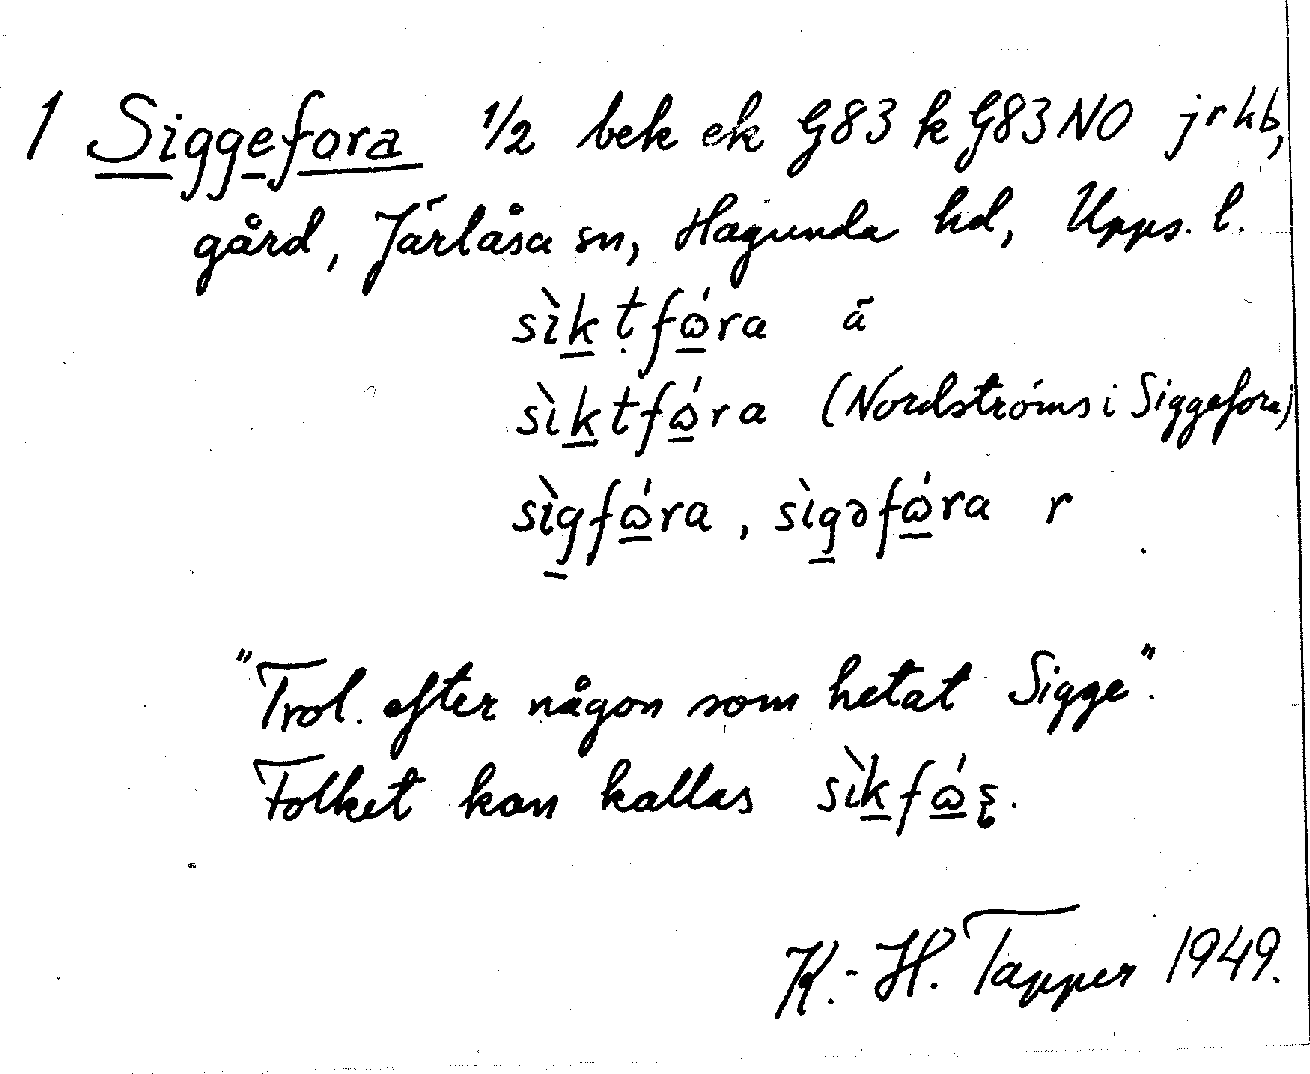 1 Siggefora 1/2 bek ek G83 k G83NO jrkb,
gård, Järlåsa sn, Hagunda hd, Upps. l.
sìk ṭfώ̱ra ä
sìktfώ̱ra (Nordströms i Siggefora)
sìgfώ̱ra, sìgəfώ̱ra r
"Trol. efter någon som hetat Sigge".
Folket kan kallas
K.-H. Tapper 1949.